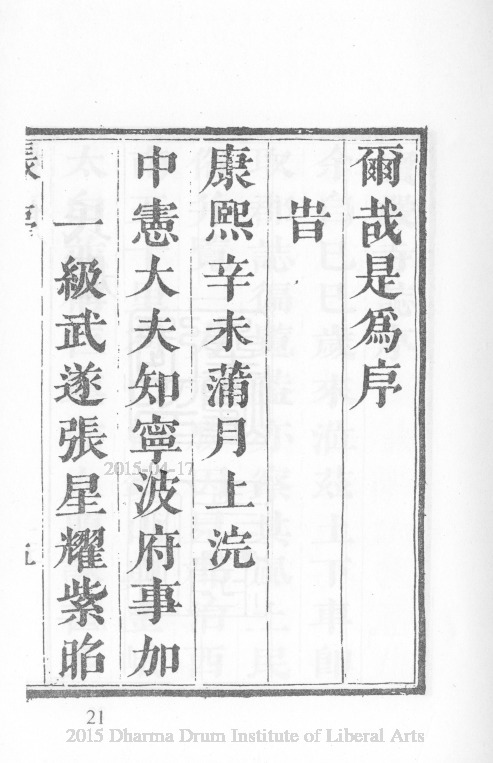 爾哉是為序
旹
康熙辛未蒲月上浣
中憲大夫知寧波府事加
一級武遂張星耀紫昭
張序
五
21
2015-04-17
2015 Dharma Drum Institute of Liberal Arts